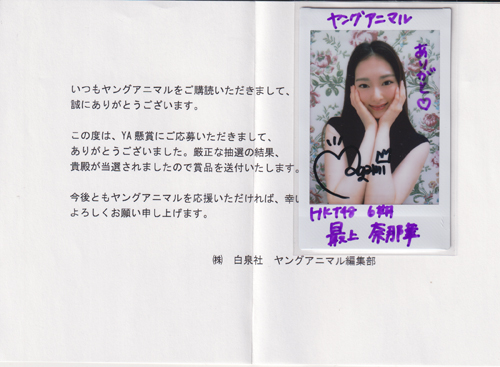 いつもヤングアニマルをご購読いただきまして、
誠にありがとうございます。
この度は、YA懸賞にご応募いただきまして、
ありがとうございました。厳正な抽選の結果、
貴殿が当選されましたので賞品を送付いたします。
今後ともヤングアニマルを応援いただければ、幸い
よろしくお願い申し上げます。
㈱ 白泉社 ヤングアニマル編集部
ヤングアニマル
ありがとう♡
HKT48 6期
最上 奈那華